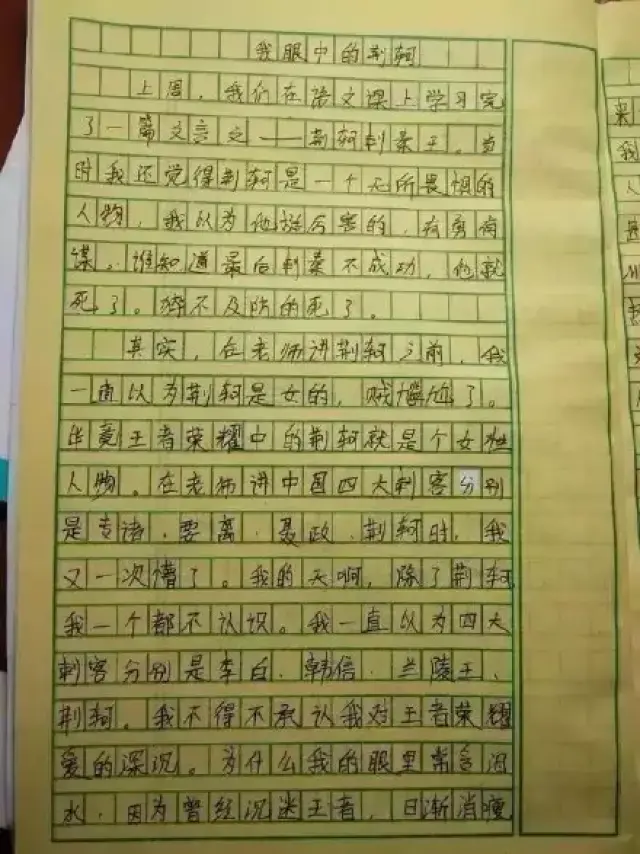 我眼中的荆轲
上周，我们在语文课上学习完
了一篇文言文——荆轲刺秦王。当
时我还觉得荆轲是一个无所畏惧的
人物，我认为他挺厉害的，有勇有
谋。谁知道最后刺秦不成功，他就
死了。猝不及防的死了。
其实，在老师讲荆轲之前，我
一直以为荆轲是女的，贼尴尬了。
毕竟王者荣耀中的荆轲就是个女性
人物。在老师讲中国四大刺客分别
是专诸、要离、聂政、荆轲时，我
又一次懵了。我的天啊，除了荆轲
我一个都不认识。我一直以为四大
刺客分别是李白、韩信、兰陵王、
荆轲。我不得不承认我对王者荣耀
爱的深沉。为什么我的眼里常含泪
水，因为曾经沉迷王者，日渐消瘦
来
我
人